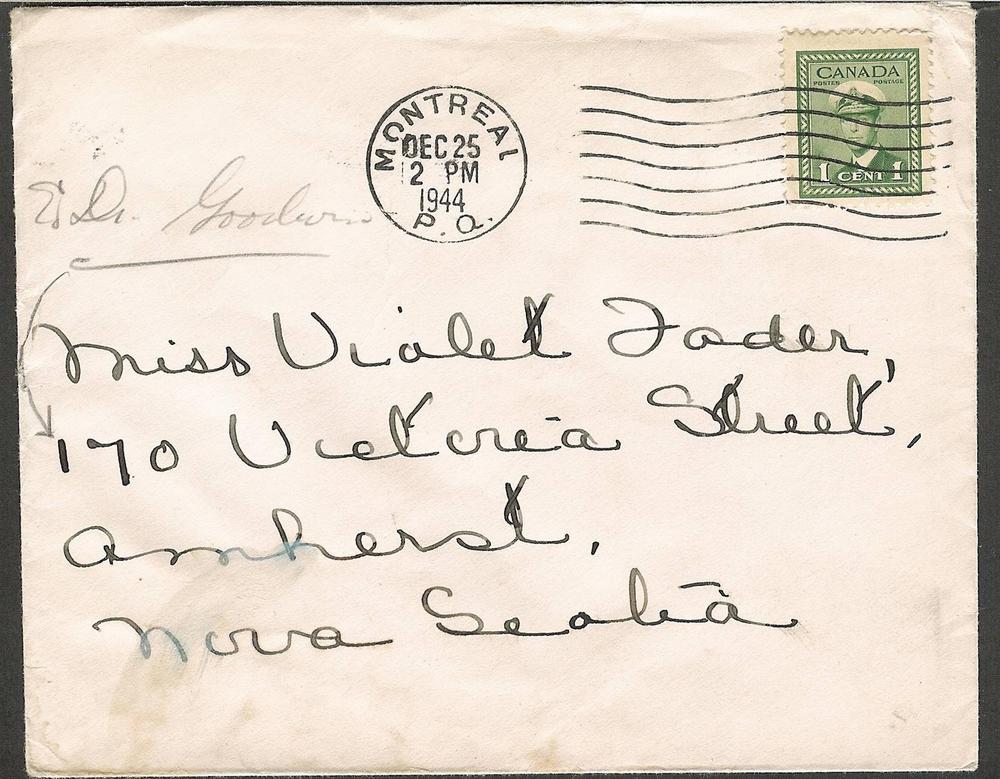 CANADA
POSTES POSTAGE
1 CENT 1
MONTREAL
DEC 25
2 PM
1944
P.Q.
Dr. Goodwin
Miss Violet Fader,
170 Victoria Street,
Amherst,
Nova Scotia